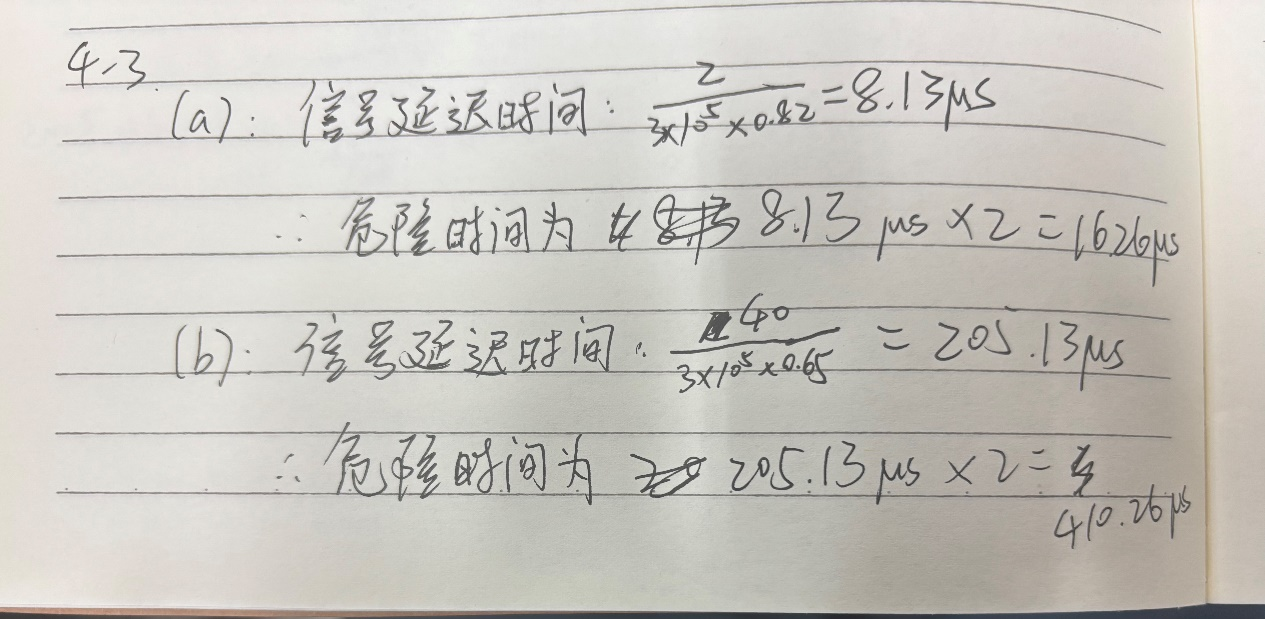 4-3
(a): 信号延迟时间: 2/(3×10⁵×0.82) = 8.13μs
∴ 危险时间为 8.13 μs × 2 = 16.26μs
(b): 信号延迟时间: 40/(3×10⁵×0.65) = 205.13μs
∴ 危险时间为 205.13 μs × 2 =
410.26μs